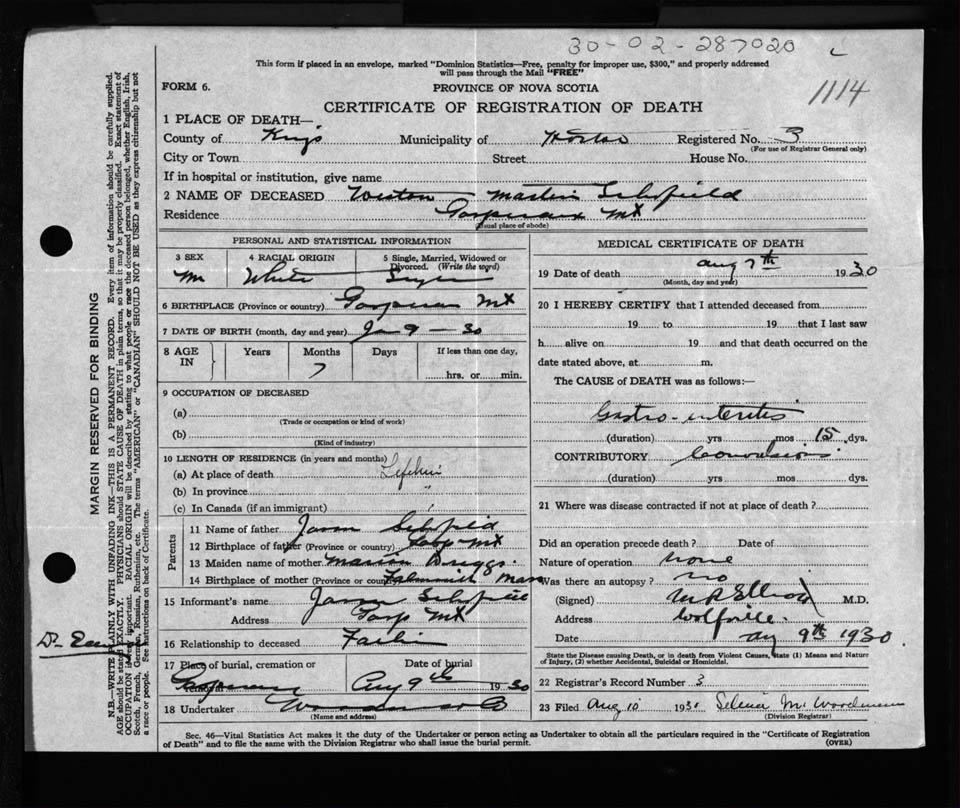 30-02-287020
1114
This form if placed in an envelope, marked "Dominion Statistics—Free, penalty for improper use, $300," and properly addressed
will pass through the Mail "FREE"
FORM 6.
PROVINCE OF NOVA SCOTIA
CERTIFICATE OF REGISTRATION OF DEATH
1 PLACE OF DEATH—
County of Kings Municipality of Horton Registered No. 3
(For use of Registrar General only)
City or Town Street House No.
If in hospital or institution, give name
2 NAME OF DECEASED Weston Martin Schofield
Residence Gaspereaux Mt
(Usual place of abode)
PERSONAL AND STATISTICAL INFORMATION
3 SEX 4 RACIAL ORIGIN 5 Single, Married, Widowed or Divorced. (Write the word)
M White Single
6 BIRTHPLACE (Province or country) Mt
7 DATE OF BIRTH (month, day and year) Jan 9 — 30
8 AGE IN Years Months Days If less than one day,
7
hrs. or min.
9 OCCUPATION OF DECEASED
(a)
(Trade or occupation or kind of work)
(b)
(Kind of industry)
10 LENGTH OF RESIDENCE (in years and months)
(a) At place of death Lifetime
(b) In province "
(c) In Canada (if an immigrant) "
Parents
11 Name of father Schofield
12 Birthplace of father (Province or country) Gasp Mt
13 Maiden name of mother Marion Briggs
14 Birthplace of mother (Province or country) Falmouth Mass
15 Informant's name Schofield
Address Gasp Mt
16 Relationship to deceased Father
17 Place of burial, cremation or removal Date of burial
Aug 9th 1930
18 Undertaker
(Name and address)
MEDICAL CERTIFICATE OF DEATH
19 Date of death Aug 7th 1930
(Month, day and year)
20 I HEREBY CERTIFY that I attended deceased from
19 to 19 that I last saw
h alive on 19 and that death occurred on the
date stated above, at m.
The CAUSE of DEATH was as follows:—
Gastro-enteritis
(duration) yrs mos 15 dys.
CONTRIBUTORY Convulsions
(duration) yrs mos dys.
21 Where was disease contracted if not at place of death?
Did an operation precede death? Date of
Nature of operation none
Was there an autopsy? no
(Signed) M R Elliott M.D.
Address Wolfville
Date Aug 9th 1930
State the Disease causing Death, or in death from Violent Causes, state (1) Means and Nature
of Injury, (2) whether Accidental, Suicidal or Homicidal.
22 Registrar's Record Number 3
23 Filed Aug 10 1930 Selena M. Woodman
(Division Registrar)
Sec. 46—Vital Statistics Act makes it the duty of the Undertaker or person acting as Undertaker to obtain all the particulars required in the "Certificate of Registration
of Death" and to file the same with the Division Registrar who shall issue the burial permit.
(OVER)
MARGIN RESERVED FOR BINDING
N.B.—WRITE PLAINLY WITH UNFADING INK—THIS IS A PERMANENT RECORD. Every item of information should be carefully supplied.
AGE should be stated EXACTLY. PHYSICIANS should STATE CAUSE OF DEATH in plain terms, so that it may be properly classified. Exact statement of
OCCUPATION is very important. RACIAL ORIGIN will be described by stating to what people or race the deceased person belonged, whether English, Irish,
Scotch, French, German, Russian, Ruthenian, etc. The terms "AMERICAN" or "CANADIAN" SHOULD NOT BE USED as they express citizenship but not
a race or people. See instructions on back of Certificate.